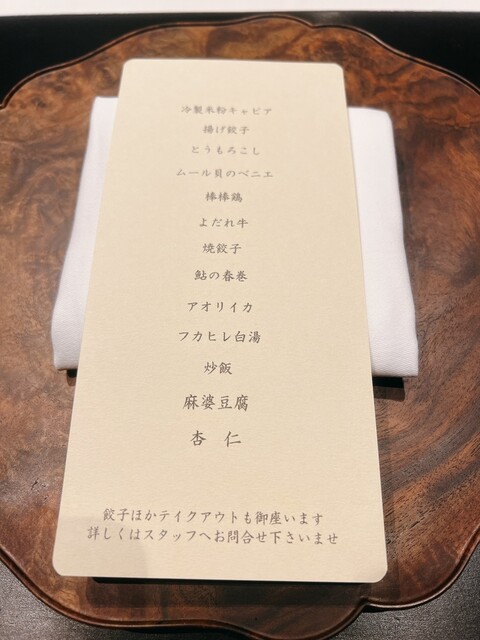 冷製米粉キャビア
揚げ餃子
とうもろこし
ムール貝のベニエ
棒棒鶏
よだれ牛
焼餃子
鮎の春巻
アオリイカ
フカヒレ白湯
炒飯
麻婆豆腐
杏 仁
餃子ほかテイクアウトも御座います
詳しくはスタッフへお問合せ下さいませ